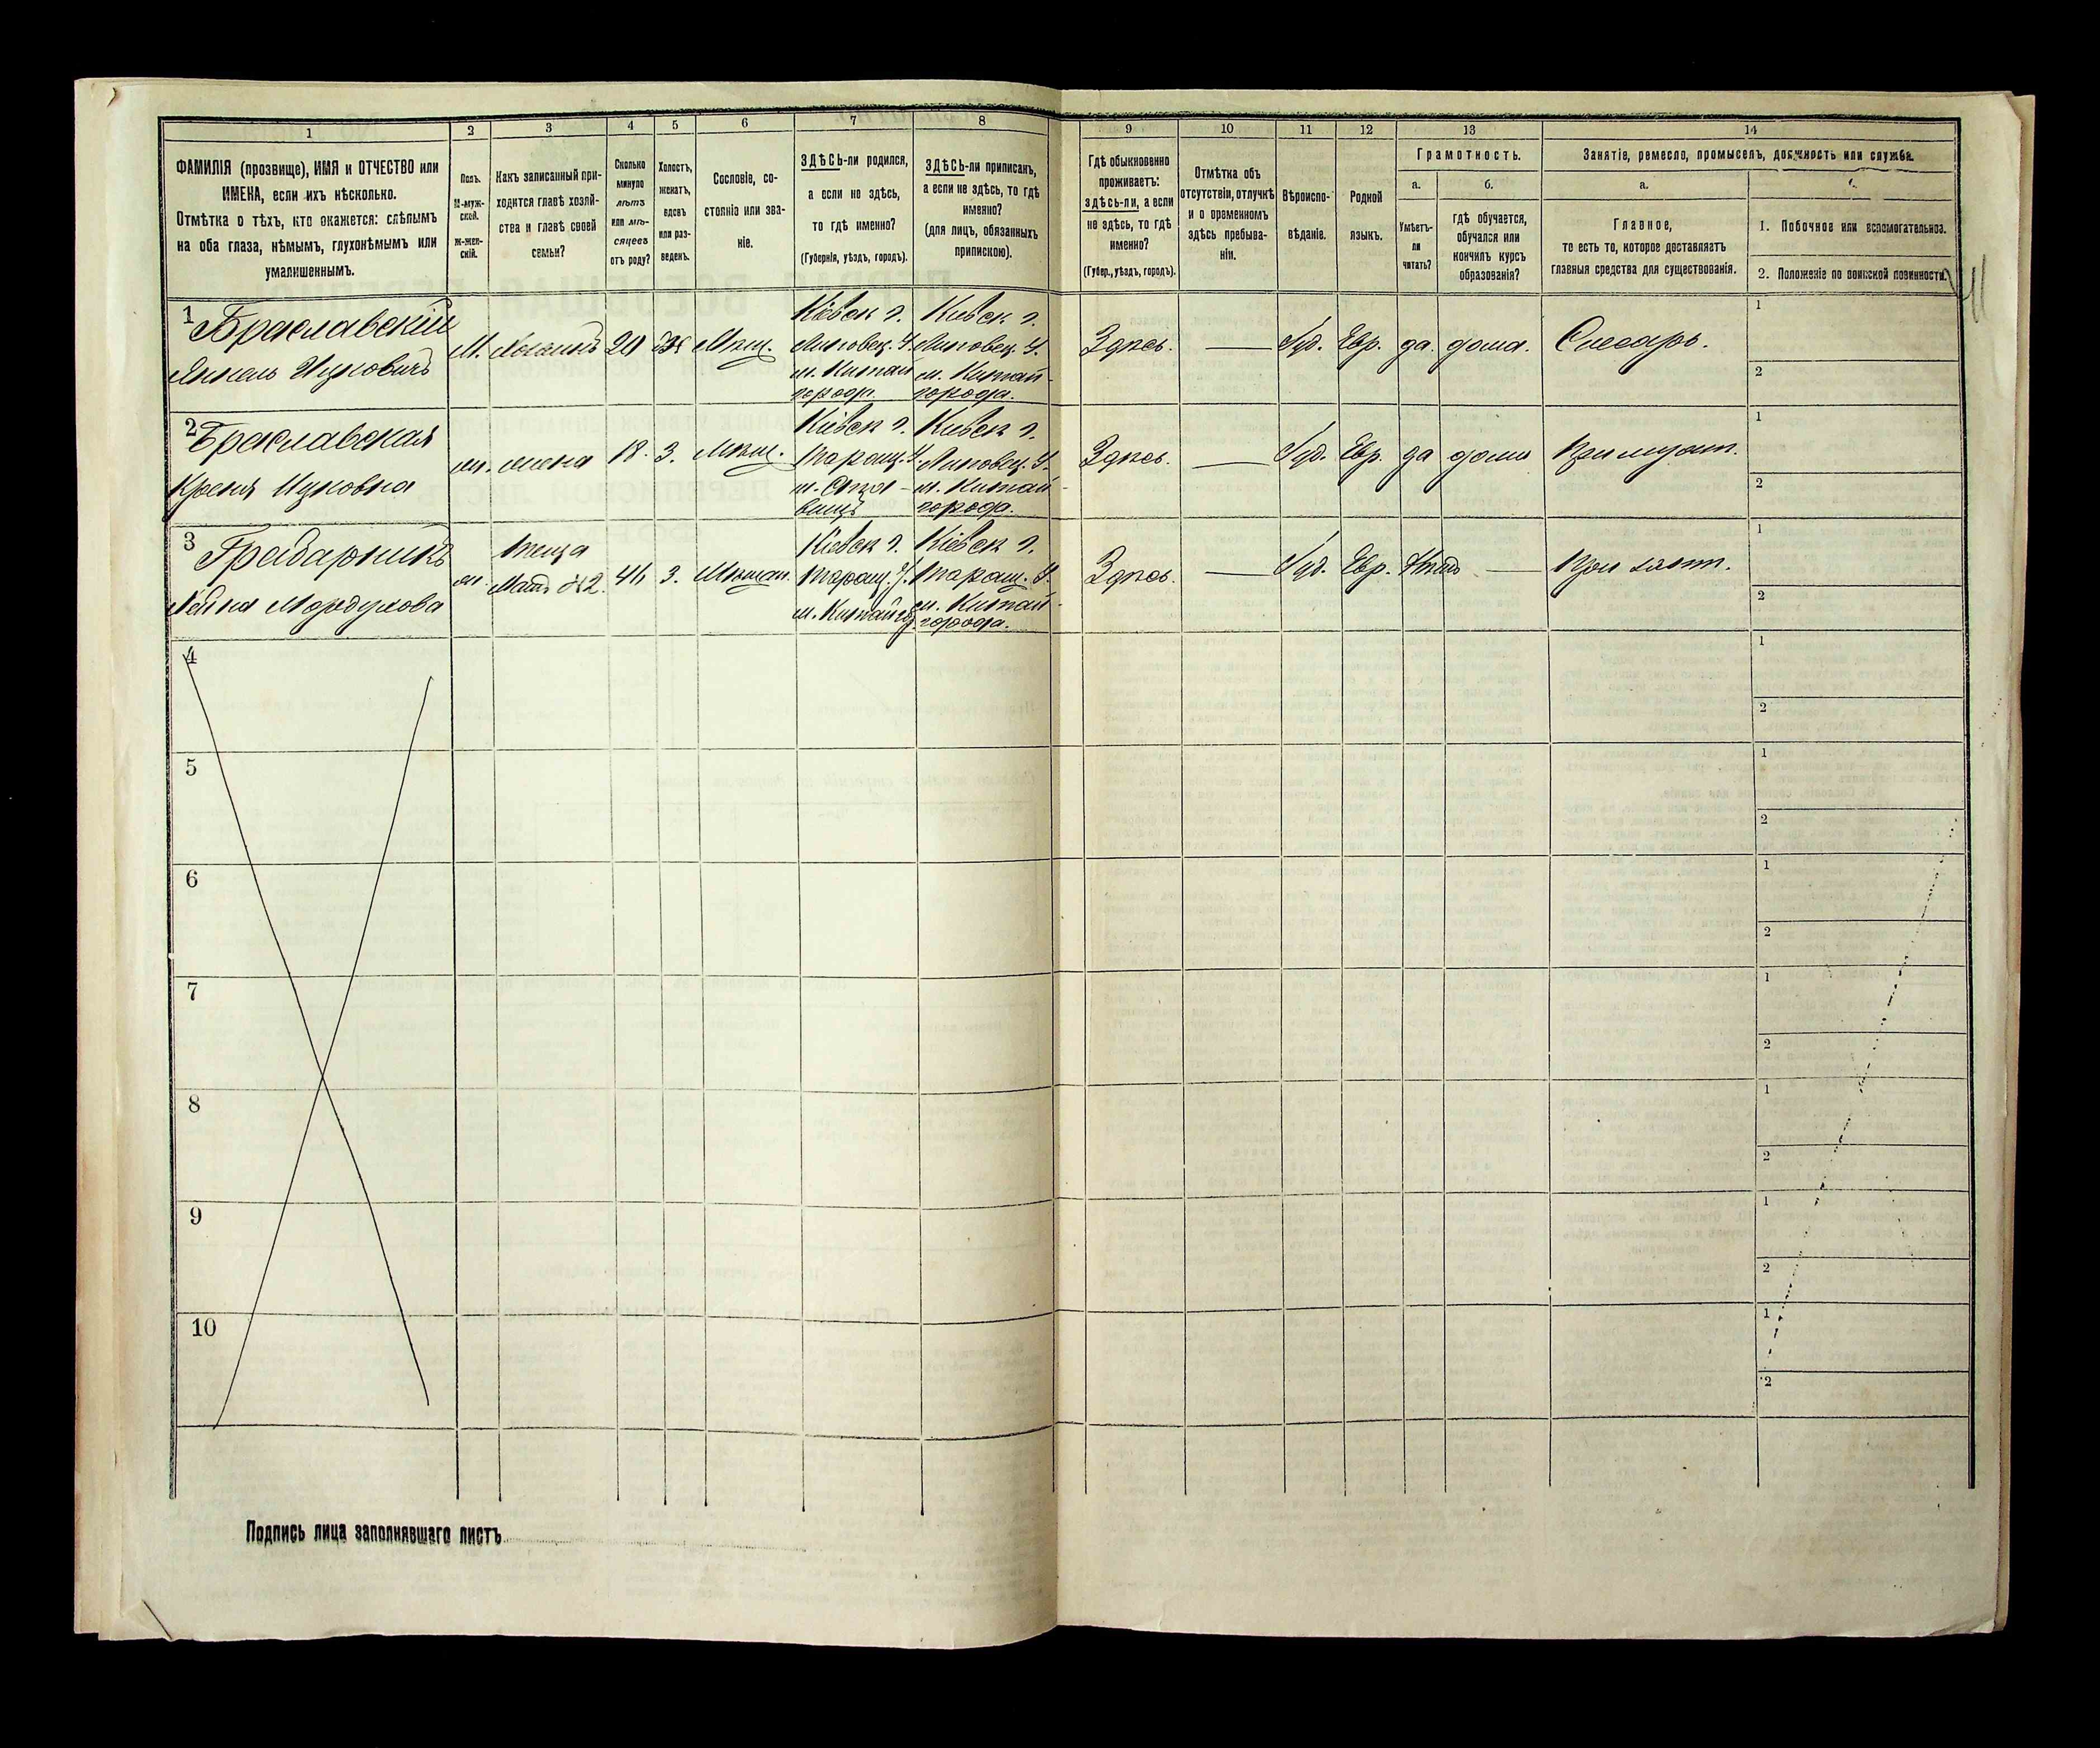 1
ФАМИЛІЯ (прозвище), ИМЯ и ОТЧЕСТВО или
ИМЕНА, если ихъ нѣсколько.
Отмѣтка о тѣхъ, кто окажется: слѣпымъ
на оба глаза, нѣмымъ, глухонѣмымъ или
умалишеннымъ.
2
Полъ.
М-муж-
ской.
ж-жен-
скій.
3
Какъ записанный при-
ходится главѣ хозяй-
ства и главѣ своей
семьи?
4
Сколько
минуло
лѣтъ
или мѣ-
сяцевъ
отъ роду?
5
Холостъ,
женатъ,
вдовъ
или раз-
веденъ.
6
Сословіе, со-
стояніе или зва-
ніе.
7
ЗДѢСЬ-ли родился,
а если не здѣсь,
то гдѣ именно?
(Губернія, уѣздъ, городъ).
8
ЗДѢСЬ-ли приписанъ,
а если не здѣсь, то гдѣ
именно?
(для лицъ, обязанныхъ
припискою).
9
Гдѣ обыкновенно
проживаетъ:
здѣсь-ли, а если
не здѣсь, то гдѣ
именно?
(Губер., уѣздъ, городъ).
10
Отмѣтка объ
отсутствіи, отлучкѣ
и о временномъ
здѣсь пребыва-
ніи.
11
Вѣроиспо-
вѣданіе.
12
Родной
языкъ.
13
Грамотность.
а.
Умѣетъ-
ли
читать?
б.
гдѣ обучается,
обучался или
кончилъ курсъ
образованія?
14
Занятіе, ремесло, промыселъ, должность или служба.
а.
Главное,
то есть то, которое доставляетъ
главныя средства для существованія.
1. Побочное или вспомогательное.
2. Положеніе по воинской повинности.
1
Браславскій
Янкель Ицковичъ
М.
Хозяинъ
Мѣщ.
Кіевск г.
Липовец. У.
м. Китай
города.
Кіевск г.
Липовец. У.
м. Китай-
города.
Здѣсь.
Іуд.
Евр.
да.
дома.
Слесарь.
1
2
2
Браславская
Ицковна
ж.
жена
18.
З.
Мѣщ.
Кіевск г.
Таращ. У.
м. Ста-
вищъ
Кіевск г.
Липовец. У.
м. Китай-
города.
Здѣсь.
Іуд.
Евр.
да
дома
При мужѣ.
1
2
3
Грабарникъ
Мордухова
ж.
теща
№2.
З.
Мѣщан.
Кіевск г.
Таращ. У.
м. Китайгор.
Кіевск г.
Таращ. У.
м. Китай-
города.
Здѣсь.
Іуд.
Евр.
Нѣтъ
При зятѣ.
1
2
4
1
2
5
1
2
6
1
2
7
1
2
8
1
2
9
1
2
10
1
2
Подпись лица заполнявшаго листъ